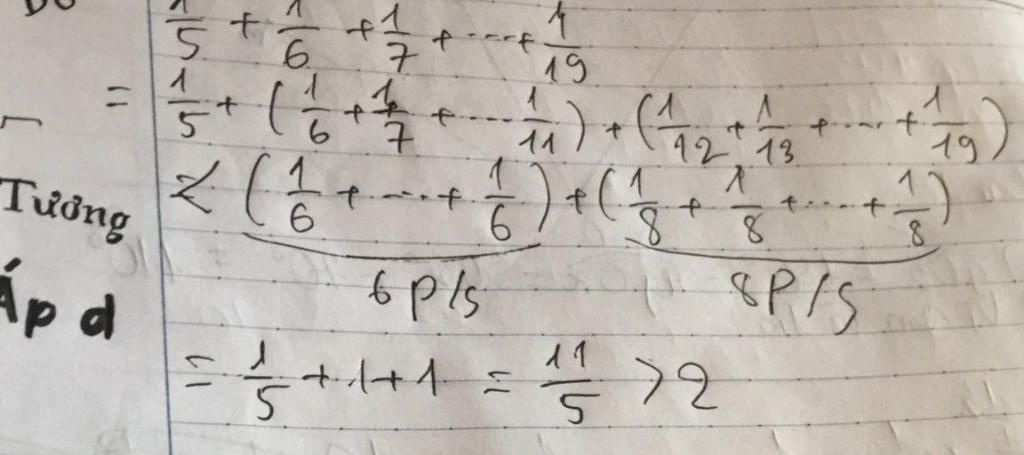 1/5 + 1/6 + 1/7 + ... + 1/19
= 1/5 + (1/6 + 1/7 + ... 1/11) + (1/12 + 1/13 + ... + 1/19)
Tương
< (1/6 + ... + 1/6) + (1/8 + 1/8 + ... + 1/8)
6 P/s 8P/s
Áp d
= 1/5 + 1 + 1 = 11/5 > 2